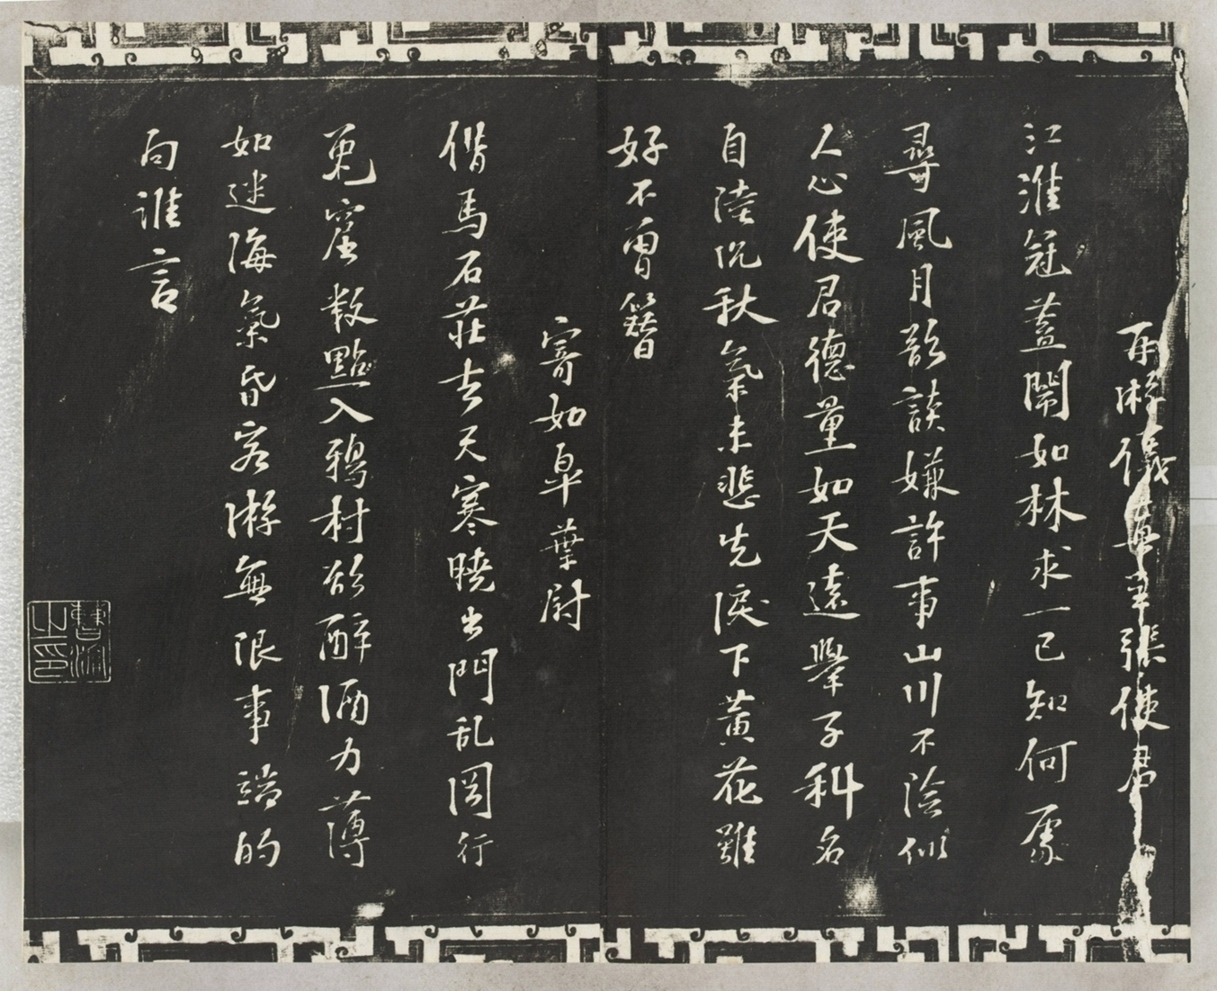 再游儀真呈張使君
江淮冠蓋鬧如林求一已知何處
尋風月欲談嫌許事山川不陰似
人心使君德量如天遠舉子科名
自陸沉秋氣未悲先淚下黃花雖
好不曾簪
寄如皋葉尉
借馬石莊去天寒曉出門乱岡行
兎窟數點入鴉村欲醉酒力薄
如迷海氣昏客游無限事端的
向誰言